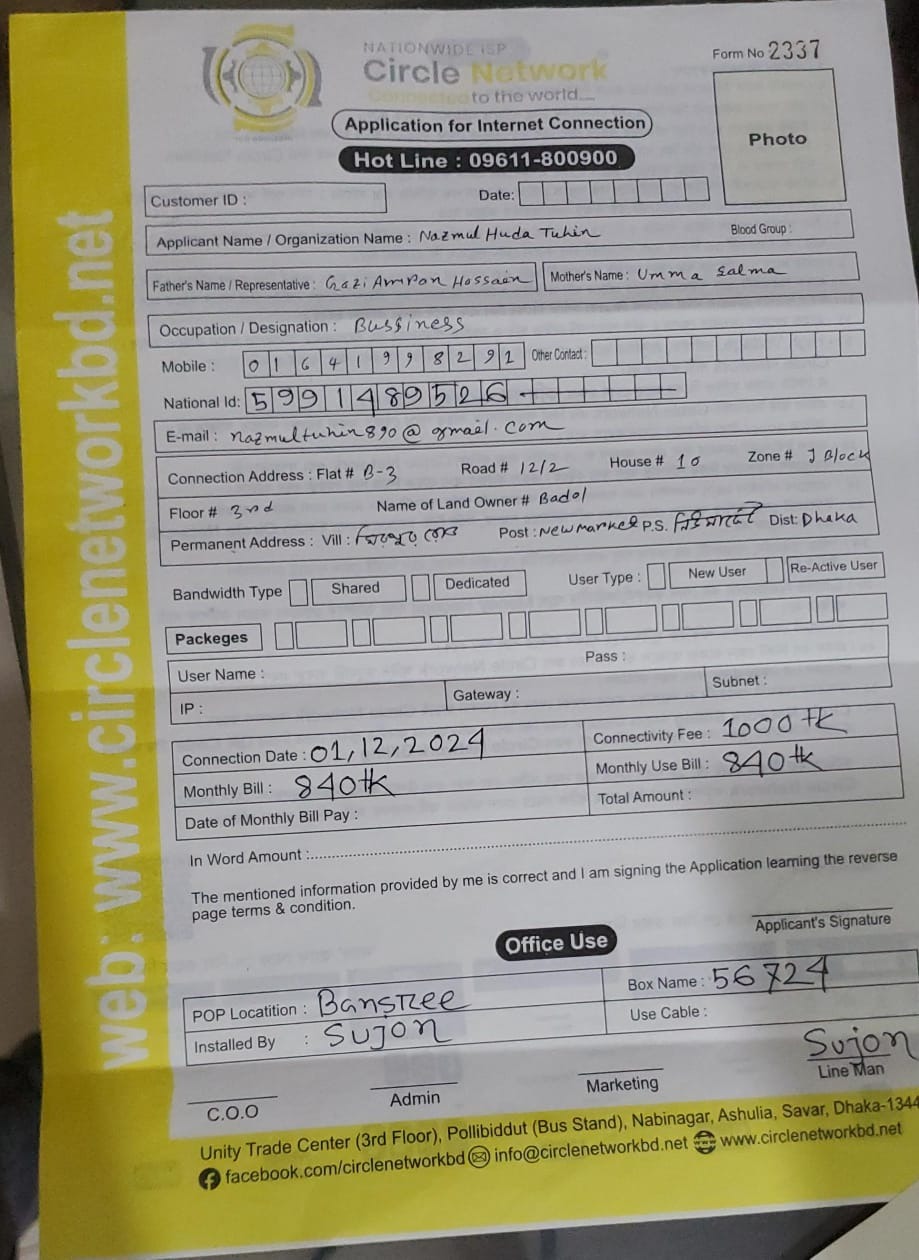 NATIONWIDE ISP
Circle Network
Connected to the world....
Form No 2337
Application for Internet Connection
Photo
Hot Line : 09611-800900
Customer ID :
Date:
Applicant Name / Organization Name : Nazmul Huda Tuhin
Blood Group :
Father's Name / Representative : Gazi Amron Hossain
Mother's Name : Umma Salma
Occupation / Designation : Bussiness
Mobile : 01641998292
Other Contact :
National Id: 5991489526
E-mail : nazmultuhin890@gmail.com
Connection Address : Flat # B-3 Road # 12/2 House # 10 Zone # J Block
Floor # 3rd Name of Land Owner # Badol
Permanent Address : Vill : Post : Newmarket P.S. Dist: Dhaka
Bandwidth Type Shared Dedicated User Type : New User Re-Active User
Packeges
User Name : Pass :
IP : Gateway : Subnet :
Connection Date : 01,12,2024 Connectivity Fee : 1000 tk
Monthly Bill : 840tk Monthly Use Bill : 840tk
Date of Monthly Bill Pay : Total Amount :
In Word Amount :
The mentioned information provided by me is correct and I am signing the Application learning the reverse
page terms & condition.
Applicant's Signature
Office Use
POP Locatition : Bansree Box Name : 56724
Installed By : Sujon Use Cable :
Sujon
C.O.O Admin Marketing Line Man
Unity Trade Center (3rd Floor), Pollibiddut (Bus Stand), Nabinagar, Ashulia, Savar, Dhaka-1344
facebook.com/circlenetworkbd info@circlenetworkbd.net www.circlenetworkbd.net
web: www.circlenetworkbd.net